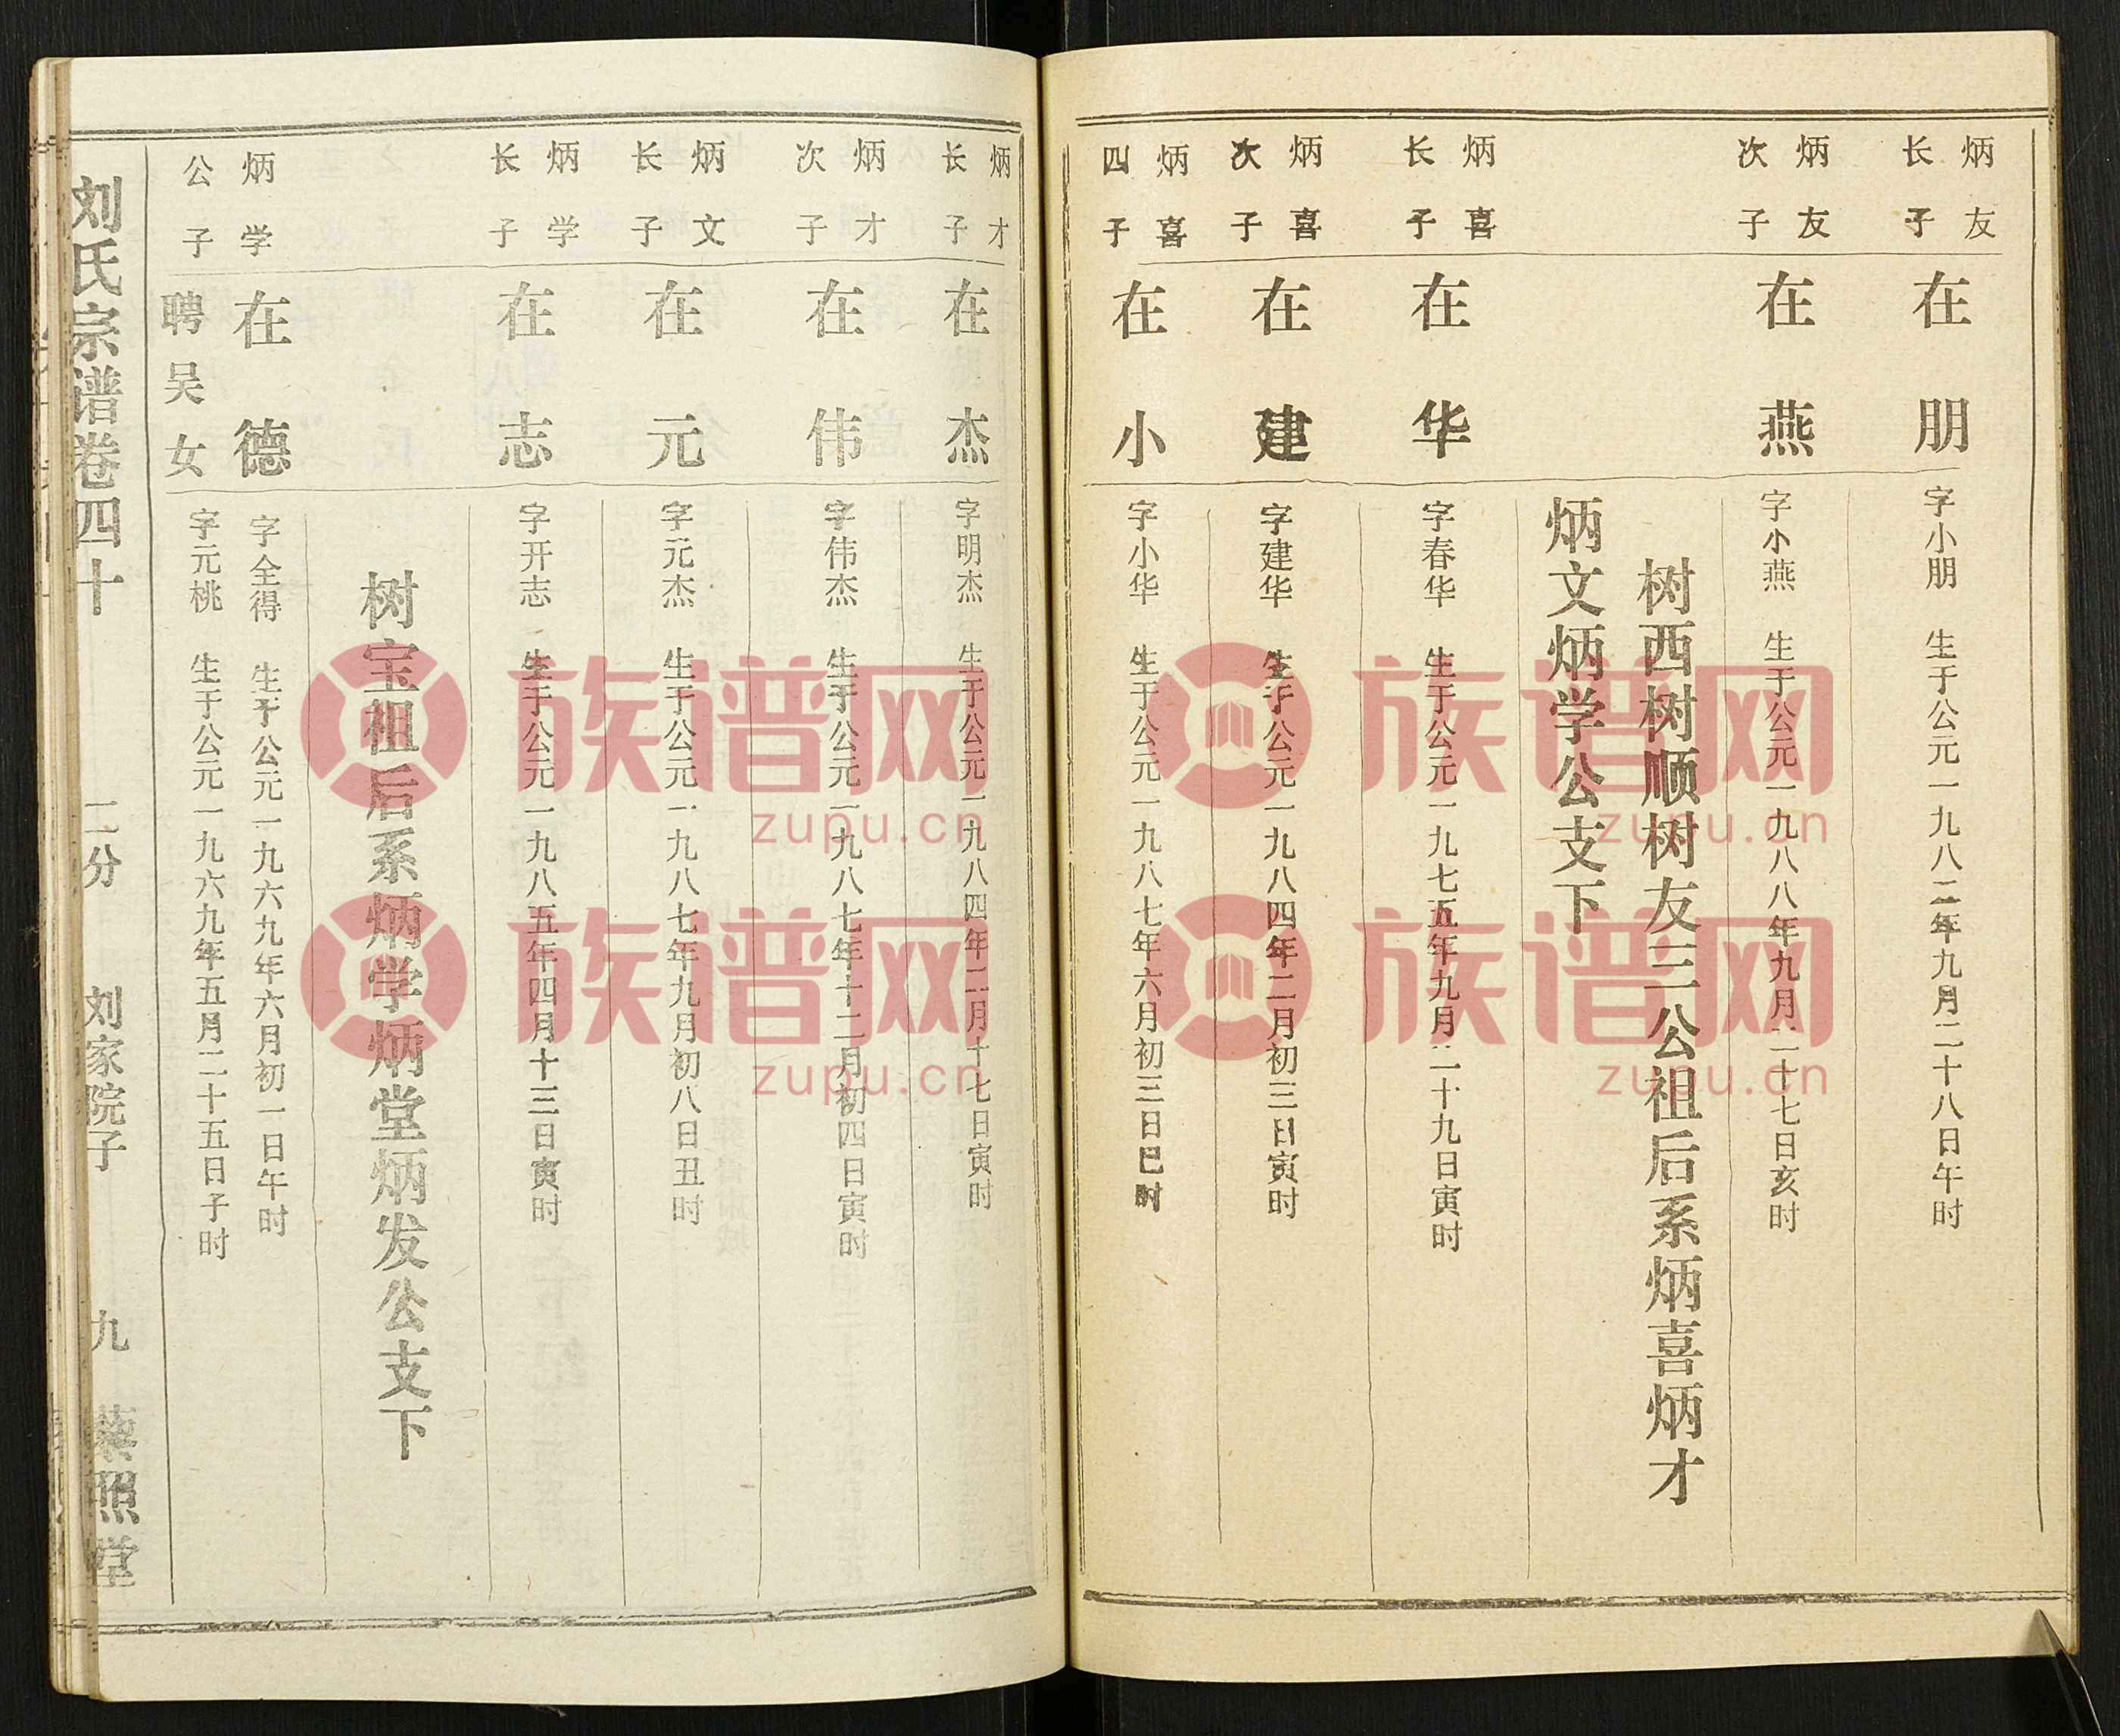 炳友
长子
在朋
字小朋 生于公元一九八二年九月二十八日午时
炳友
次子
在燕
字小燕 生于公元一九八八年九月二十七日亥时
树西树顺树友三公祖后系炳喜炳才
炳文炳学公支下
炳喜
长子
在华
字春华 生于公元一九七五年九月二十九日寅时
炳喜
次子
在建
字建华 生于公元一九八四年二月初三日寅时
炳喜
四子
在小
字小华 生于公元一九八七年六月初三日巳时
炳才
长子
在杰
字明杰 生于公元一九八四年二月十七日寅时
炳才
次子
在伟
字伟杰 生于公元一九八七年十二月初四日寅时
炳文
长子
在元
字元杰 生于公元一九八七年九月初八日丑时
炳学
长子
在志
字开志 生于公元一九八五年四月十三日寅时
树宝祖后系炳学炳堂炳发公支下
炳学
公子
在德
字全得 生于公元一九六九年六月初一日午时
聘吴女
字元桃 生于公元一九六九年五月二十五日子时
刘氏宗谱卷四十 二分 刘家院子 九 藜照堂
族谱网
zupu.cn
族谱网
zupu.cn
族谱网
zupu.cn
族谱网
zupu.cn